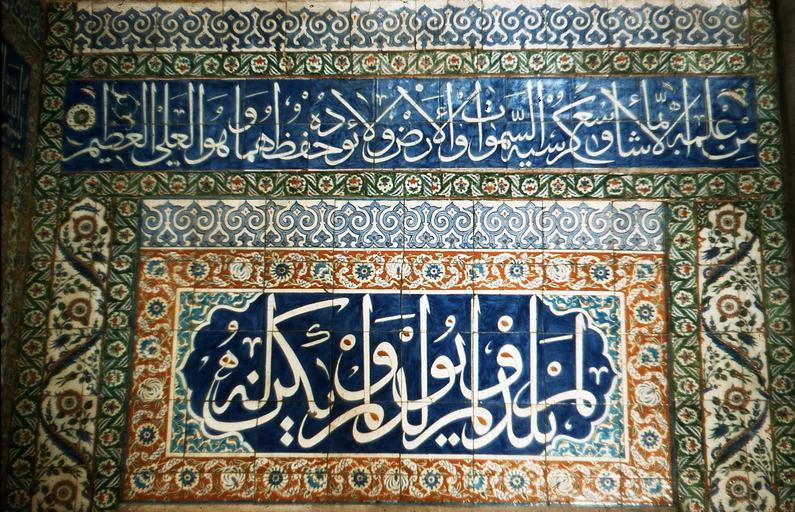 من علمه إلا بما شاء وسع كرسيه السموات والأرض ولا يؤده حفظهما وهو العلي العظيم
لم يلد ولم يولد ولم يكن له